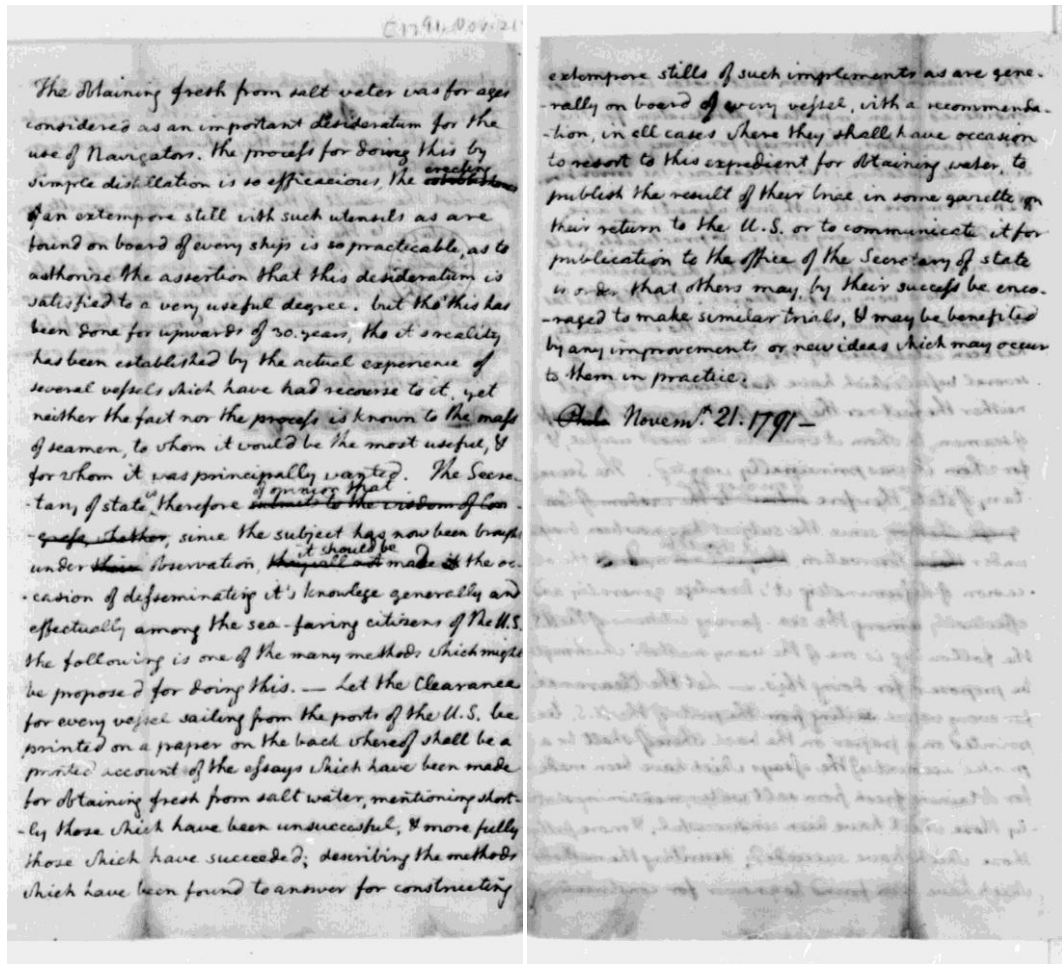 [1791, Nov. 21
The obtaining fresh from salt water was for ages
considered as an important desideratum for the
use of Navigators. the process for doing this by
simple distillation is so efficacious, the erecting
of an extempore still with such utensils as are
found on board of every ship is so practicable, as to
authorize the assertion that this desideratum is
satisfied to a very useful degree. but tho' this has
been done for upwards of 30. years, tho it's reality
has been established by the actual experience of
several vessels which have had recourse to it, yet
neither the fact nor the process is known to the mass
of seamen, to whom it would be the most useful, &
for whom it was principally wanted. The Secre-
of opinion that
-tary of state is therefore submits to the wisdom of Con-
-gress, whether, since the subject has now been brought
it should be
under their observation, they will not made it the oc-
-casion of disseminating it's knowlege generally and
effectually among the sea-faring citizens of the U.S.
the following is one of the many methods which might
be proposed for doing this. — Let the Clearance
for every vessel sailing from the ports of the U.S. be
printed on a paper on the back whereof shall be a
printed account of the essays which have been made
for obtaining fresh from salt water, mentioning short-
-ly those which have been unsuccesful, & more fully
those which have succeeded; describing the methods
which have been found to answer for constructing
extempore stills of such implements as are gene-
-rally on board of every vessel, with a recommenda-
-tion, in all cases where they shall have occasion
to resort to this expedient for obtaining water, to
publish the result of their trial in some gazette on
their return to the U.S. or to communicate it for
publication to the office of the Secretary of state
in order that others may by their success be enco-
-raged to make similar trials, & may be benefited
by any improvements or new ideas which may occur
to them in practice.
Phila Novemr. 21. 1791 —